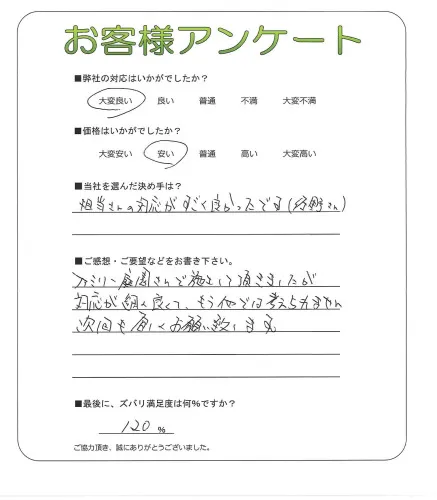 お客様アンケート
■弊社の対応はいかがでしたか？
大変良い 良い 普通 不満 大変不満
■価格はいかがでしたか？
大変安い 安い 普通 高い 大変高い
■当社を選んだ決め手は？
担当さんの対応がすごく良かったです(
■ご感想・ご要望などをお書き下さい。
ファミリー庭園さんで施工して頂きましたが
対応が凄く良くて、もう他では考えられません
次回も宜しくお願い致します
■最後に、ズバリ満足度は何%ですか？
120 %
ご協力頂き、誠にありがとうございました。